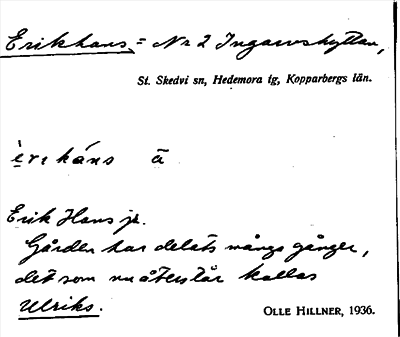 Erikhans = Nr 2 Ingarvshyttan,
St. Skedvi sn, Hedemora tg, Kopparbergs län.
èrikáns ā
Erik Hans jr.
Gården har delats många gånger,
det som nu återstår kallas
Ulriks.
OLLE HILLNER, 1936.